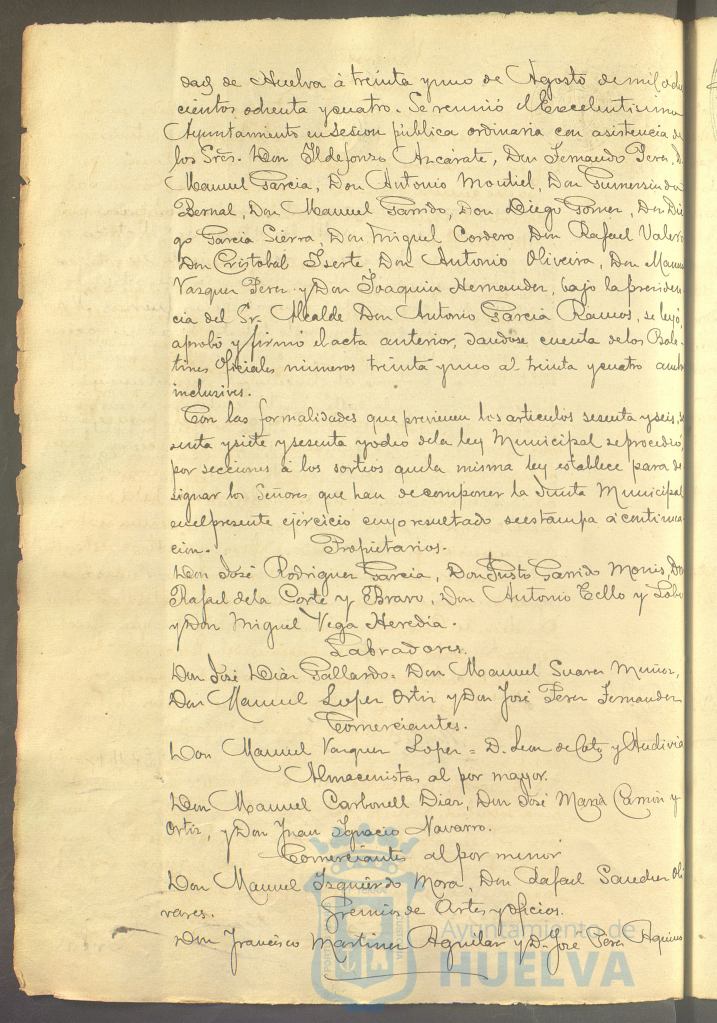 dad de Huelva á treinta y uno de Agosto de mil ocho
cientos ochenta y cuatro. Se reunió el Excelentisimo
Ayuntamiento en sesion pública ordinaria con asistencia de
los Sres. Don Ildefonso Azcárate, Don Fernando Perez, D.
Manuel Garcia, Don Antonio Montiel, Don Gumersindo
Bernal, Don Manuel Garrido, Don Diego Gomez, Don Die
go Garcia Sierra, Don Miguel Cordero Don Rafael Valero
Don Cristobal Iserte Don Antonio Oliveira, Don Manuel
Vazquez Perez y Don Joaquin Hernandez, bajo la presiden
cia del Sr. Alcalde Don Antonio Garcia Ramos, se leyó,
aprobó y firmó el acta anterior, dandose cuenta de los Bole-
tines Oficiales números treinta y uno al treinta y cuatro ambos
inclusives.
Con las formalidades que previenen los articulos sesenta y seis, se
senta y siete y sesenta y ocho de la ley Municipal se procedió
por secciones á los sorteos que la misma ley establece para de
signar los Señores que han de componer la Junta Municipal
en el presente ejercicio cuyo resultado se estampa á continua
cion.
Propietarios.
Don José Rodriguez Garcia, Don Justo Garrido Monis, Don
Rafael de la Corte y Bravo, Don Antonio Tello y Lobo
y Don Miguel Vega Heredia.
Labradores.
Don José Diaz Gallardo = Don Manuel Suarez Muñoz,
Don Manuel Lopez Ortiz y Don José Perez Fernandez
Comerciantes.
Don Manuel Vazquez Lopez = D. Leon de y
Almacenistas al por mayor.
Don Manuel Carbonell Diaz, Don José Maria Carrión y
Ortiz, y Don Juan Ignacio Navarro.
Comerciantes al por menor
Don Manuel Izquierdo Mora, Don Rafael Sanchez Oli
vares.
Gremios de Artes y oficios.
Don Francisco Martinez Aguilar y D. José Perez
Ayuntamiento de
HUELVA